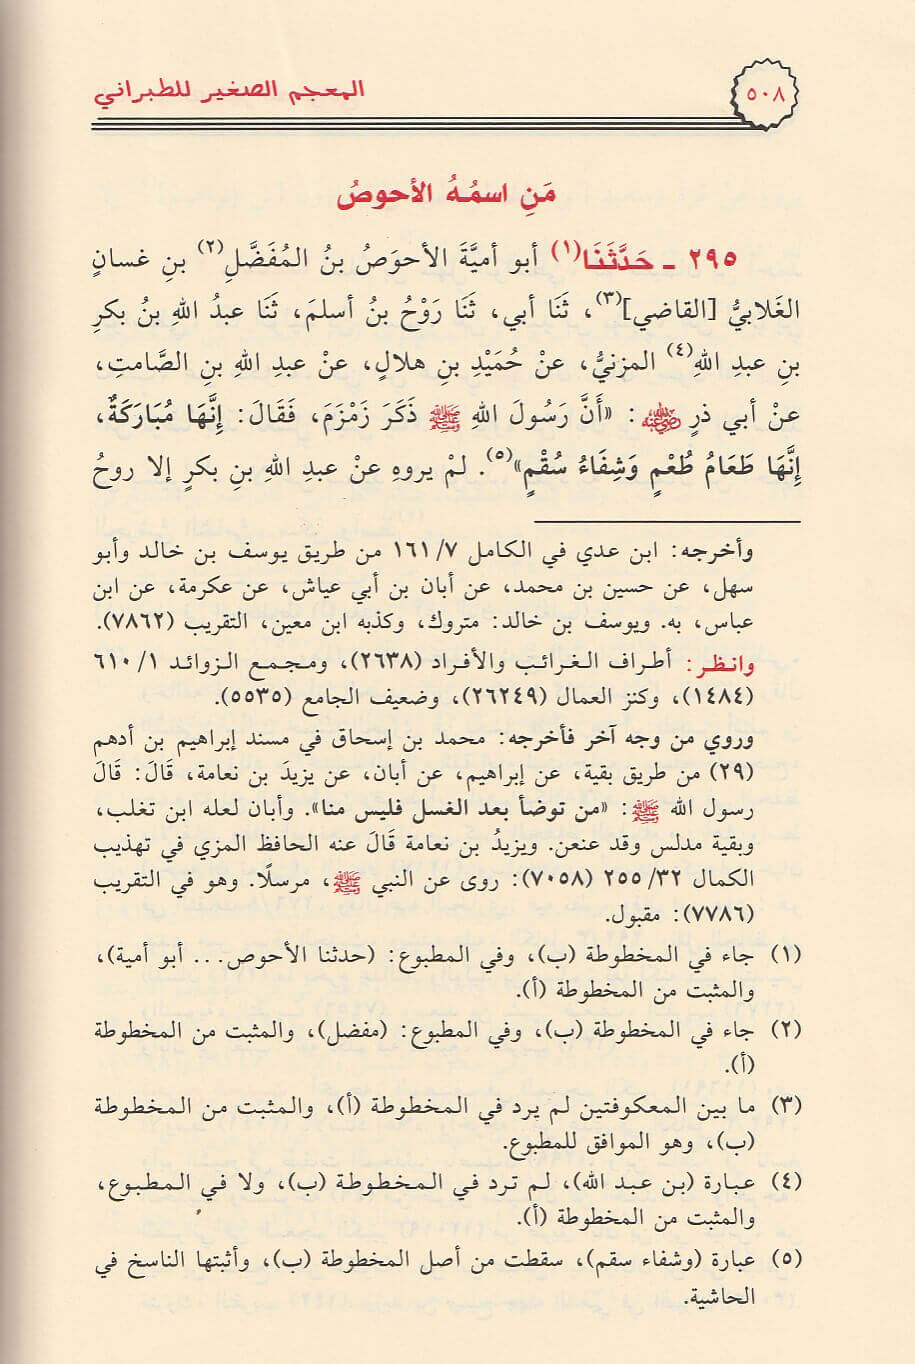 ٥٠٨
المعجم الصغير للطبراني
مَنِ اسمُهُ الأحوصُ
٢٩٥ ـ حَدَّثَنَا(١) أبو أميَّةَ الأحوَصُ بنُ المُفَضَّلِ(٢) بنِ غسانٍ
الغَلابيُّ [القاضي](٣)، ثَنَا أبي، ثَنَا رَوْحُ بنُ أسلمَ، ثَنَا عبدُ اللهِ بنُ بكرِ
بنِ عبدِ اللهِ(٤) المزنيُّ، عنْ حُمَيْدِ بنِ هلالٍ، عنْ عبدِ اللهِ بنِ الصَّامتِ،
عنْ أبي ذرٍ رضي الله عنه: «أَنَّ رَسُولَ اللهِ ﷺ ذَكَرَ زَمْزَمَ، فَقَالَ: إِنَّهَا مُبَارَكَةٌ،
إِنَّهَا طَعَامُ طُعْمٍ وَشِفَاءُ سُقْمٍ»(٥). لمْ يروهِ عنْ عبدِ اللهِ بنِ بكرٍ إلا روحُ
وأخرجه: ابن عدي في الكامل ٧/ ١٦١ من طريق يوسف بن خالد وأبو
سهل، عن حسين بن محمد، عن أبان بن أبي عياش، عن عكرمة، عن ابن
عباس، به. ويوسف بن خالد: متروك، وكذبه ابن معين، التقريب (٧٨٦٢).
وانظر: أطراف الغرائب والأفراد (٢٦٣٨)، ومجمع الزوائد ١/ ٦١٠
(١٤٨٤)، وكنز العمال (٢٦٢٤٩)، وضعيف الجامع (٥٥٣٥).
وروي من وجه آخر فأخرجه: محمد بن إسحاق في مسند إبراهيم بن أدهم
(٢٩) من طريق بقية، عن إبراهيم، عن أبان، عن يزيدَ بن نعامة، قَالَ: قَالَ
رسول الله ﷺ: «من توضأ بعد الغسل فليس منا». وأبان لعله ابن تغلب،
وبقية مدلس وقد عنعن. ويزيد بن نعامة قَالَ عنه الحافظ المزي في تهذيب
الكمال ٣٢/ ٢٥٥ (٧٠٥٨): روى عن النبي ﷺ، مرسلًا. وهو في التقريب
(٧٧٨٦): مقبول.
(١) جاء في المخطوطة (ب)، وفي المطبوع: (حدثنا الأحوص... أبو أمية)،
والمثبت من المخطوطة (أ).
(٢) جاء في المخطوطة (ب)، وفي المطبوع: (مفضل)، والمثبت من المخطوطة
(أ).
(٣) ما بين المعكوفتين لم يرد في المخطوطة (أ)، والمثبت من المخطوطة
(ب)، وهو الموافق للمطبوع.
(٤) عبارة (بن عبد الله)، لم ترد في المخطوطة (ب)، ولا في المطبوع،
والمثبت من المخطوطة (أ).
(٥) عبارة (وشفاء سقم)، سقطت من أصل المخطوطة (ب)، وأثبتها الناسخ في
الحاشية.